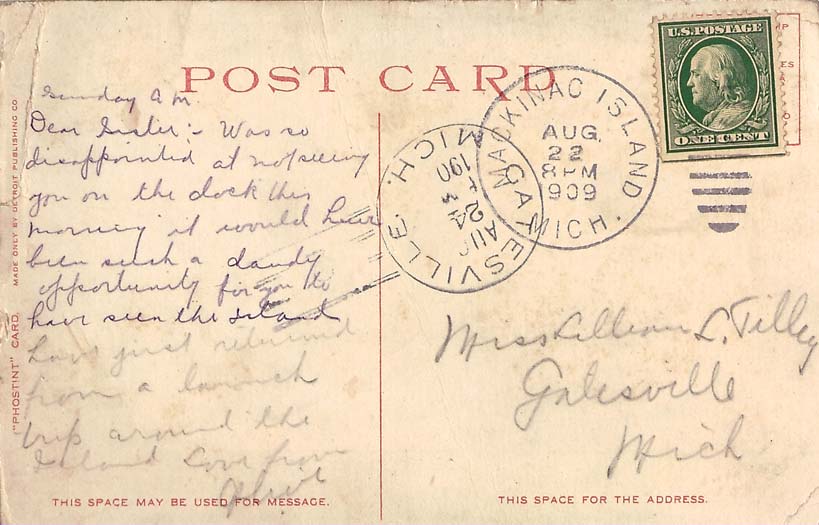 POST CARD
Sunday a.m.
Dear Sister:- Was so
disappointed at not seeing
you on the dock this
morning it would have
been such a dandy
opportunity for you to
have seen the Island
Have just returned
from a launch
trip around the
Island Love from
THIS SPACE MAY BE USED FOR MESSAGE.
"PHOSTINT" CARD. MADE ONLY BY DETROIT PUBLISHING CO.
MICH.
190
24
AUG
GATESVILLE
MACKINAC ISLAND
AUG.
22
8 PM
909
MICH.
U.S. POSTAGE
ONE CENT
Miss Lillian L. Tilley
Gatesville
Mich
THIS SPACE FOR THE ADDRESS.